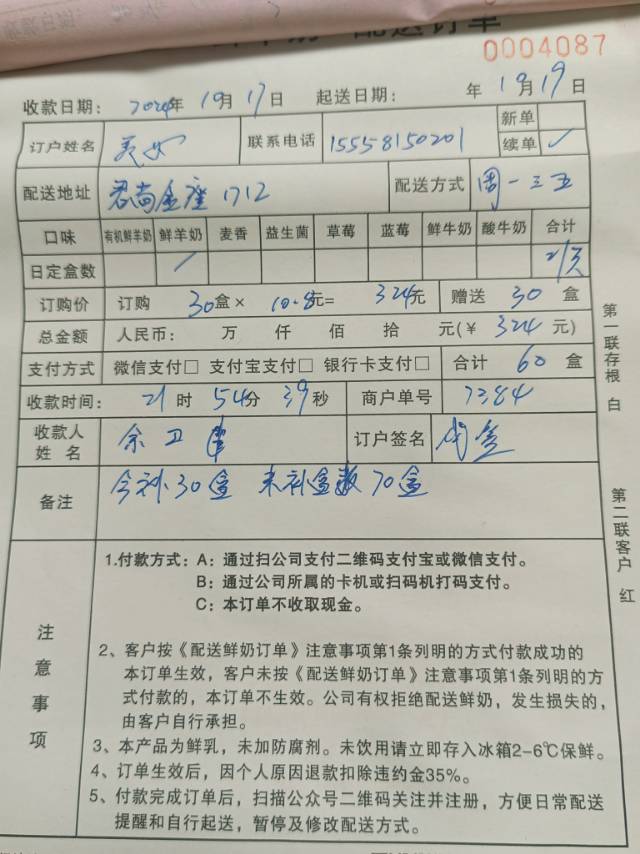 配送订单
0004087
收款日期： 2024年 10月 17日 起送日期： 年 10月 19日
订户姓名 联系电话 15558150201 新单
续单 ✓
配送地址 君尚金座 1712 配送方式 周一三五
口味 有机鲜羊奶 鲜羊奶 麦香 益生菌 草莓 蓝莓 鲜牛奶 酸牛奶 合计
日定盒数 ✓
订购价 订购 30盒× 10.8元= 324元 赠送 30 盒
总金额 人民币： 万 仟 佰 拾 元(￥ 324 元)
支付方式 微信支付□ 支付宝支付□ 银行卡支付□ 合计 60 盒
收款时间： 21时 54分 39秒 商户单号 7384
收款人
姓 名 余卫 订户签名
备注 今补30盒 未补盒数70盒
第一联存根 白
第二联客户 红
注意事项
1.付款方式：A：通过扫公司支付二维码支付宝或微信支付。
B：通过公司所属的卡机或扫码机打码支付。
C：本订单不收取现金。
2、客户按《配送鲜奶订单》注意事项第1条列明的方式付款成功的
本订单生效，客户未按《配送鲜奶订单》注意事项第1条列明的方
式付款的，本订单不生效。公司有权拒绝配送鲜奶，发生损失的，
由客户自行承担。
3、本产品为鲜乳，未加防腐剂。未饮用请立即存入冰箱2-6℃保鲜。
4、订单生效后，因个人原因退款扣除违约金35%。
5、付款完成订单后，扫描公众号二维码关注并注册，方便日常配送
提醒和自行起送，暂停及修改配送方式。